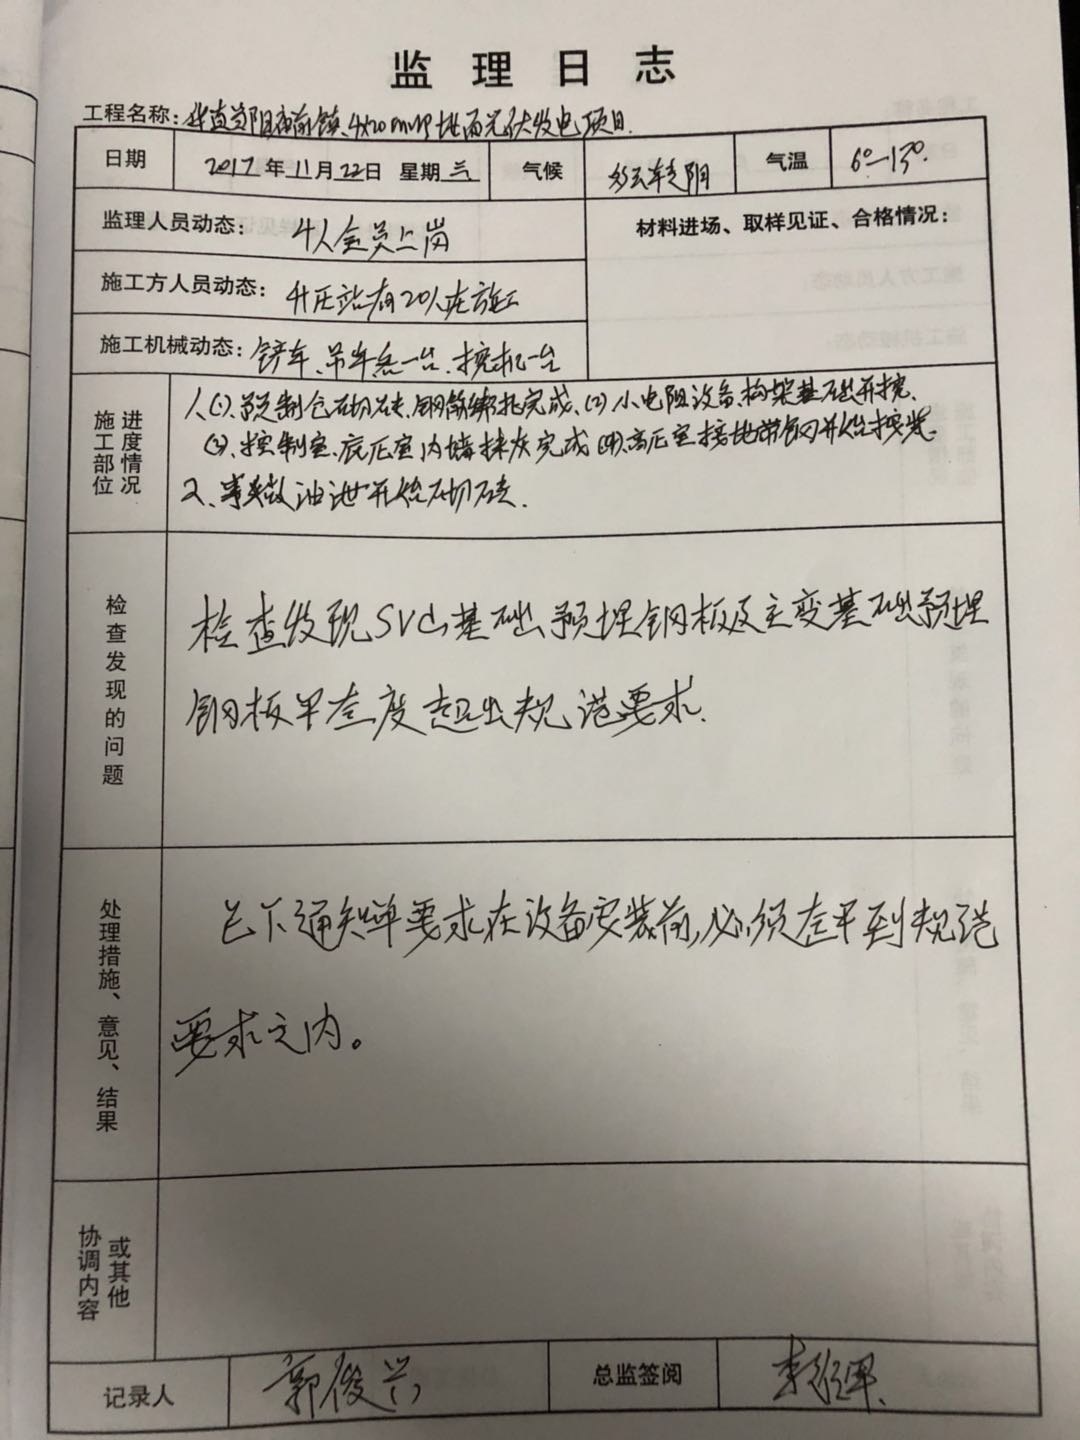 监理日志
工程名称: 华直郧阳 前镇 4×20MWP地面光伏发电项目.
日期 2017年11月22日 星期三 气候 多云转阴 气温 6°—13°.
监理人员动态: 4人全员上岗
材料进场、取样见证、合格情况:
施工方人员动态: 升压站有20人在施工
施工机械动态: 铲车、吊车各一台、挖机一台
施工部位 进度情况
1、(1)、预制仓砌砖、钢筋绑扎完成、(2)小电阻设备、构架基础开挖.
(3)、控制室、底压室内墙抹灰完成 (4)、高压室接地带钢开始
2、事故油池开始砌砖.
检查发现的问题
检查发现SVG基础预埋钢板及主变基础预埋
钢板平差度超出规范要求.
处理措施、意见、结果
已下通知单要求在设备安装前,必须 平到规范
要求之内。
协调内容 或其他
记录人 郭俊兴 总监签阅